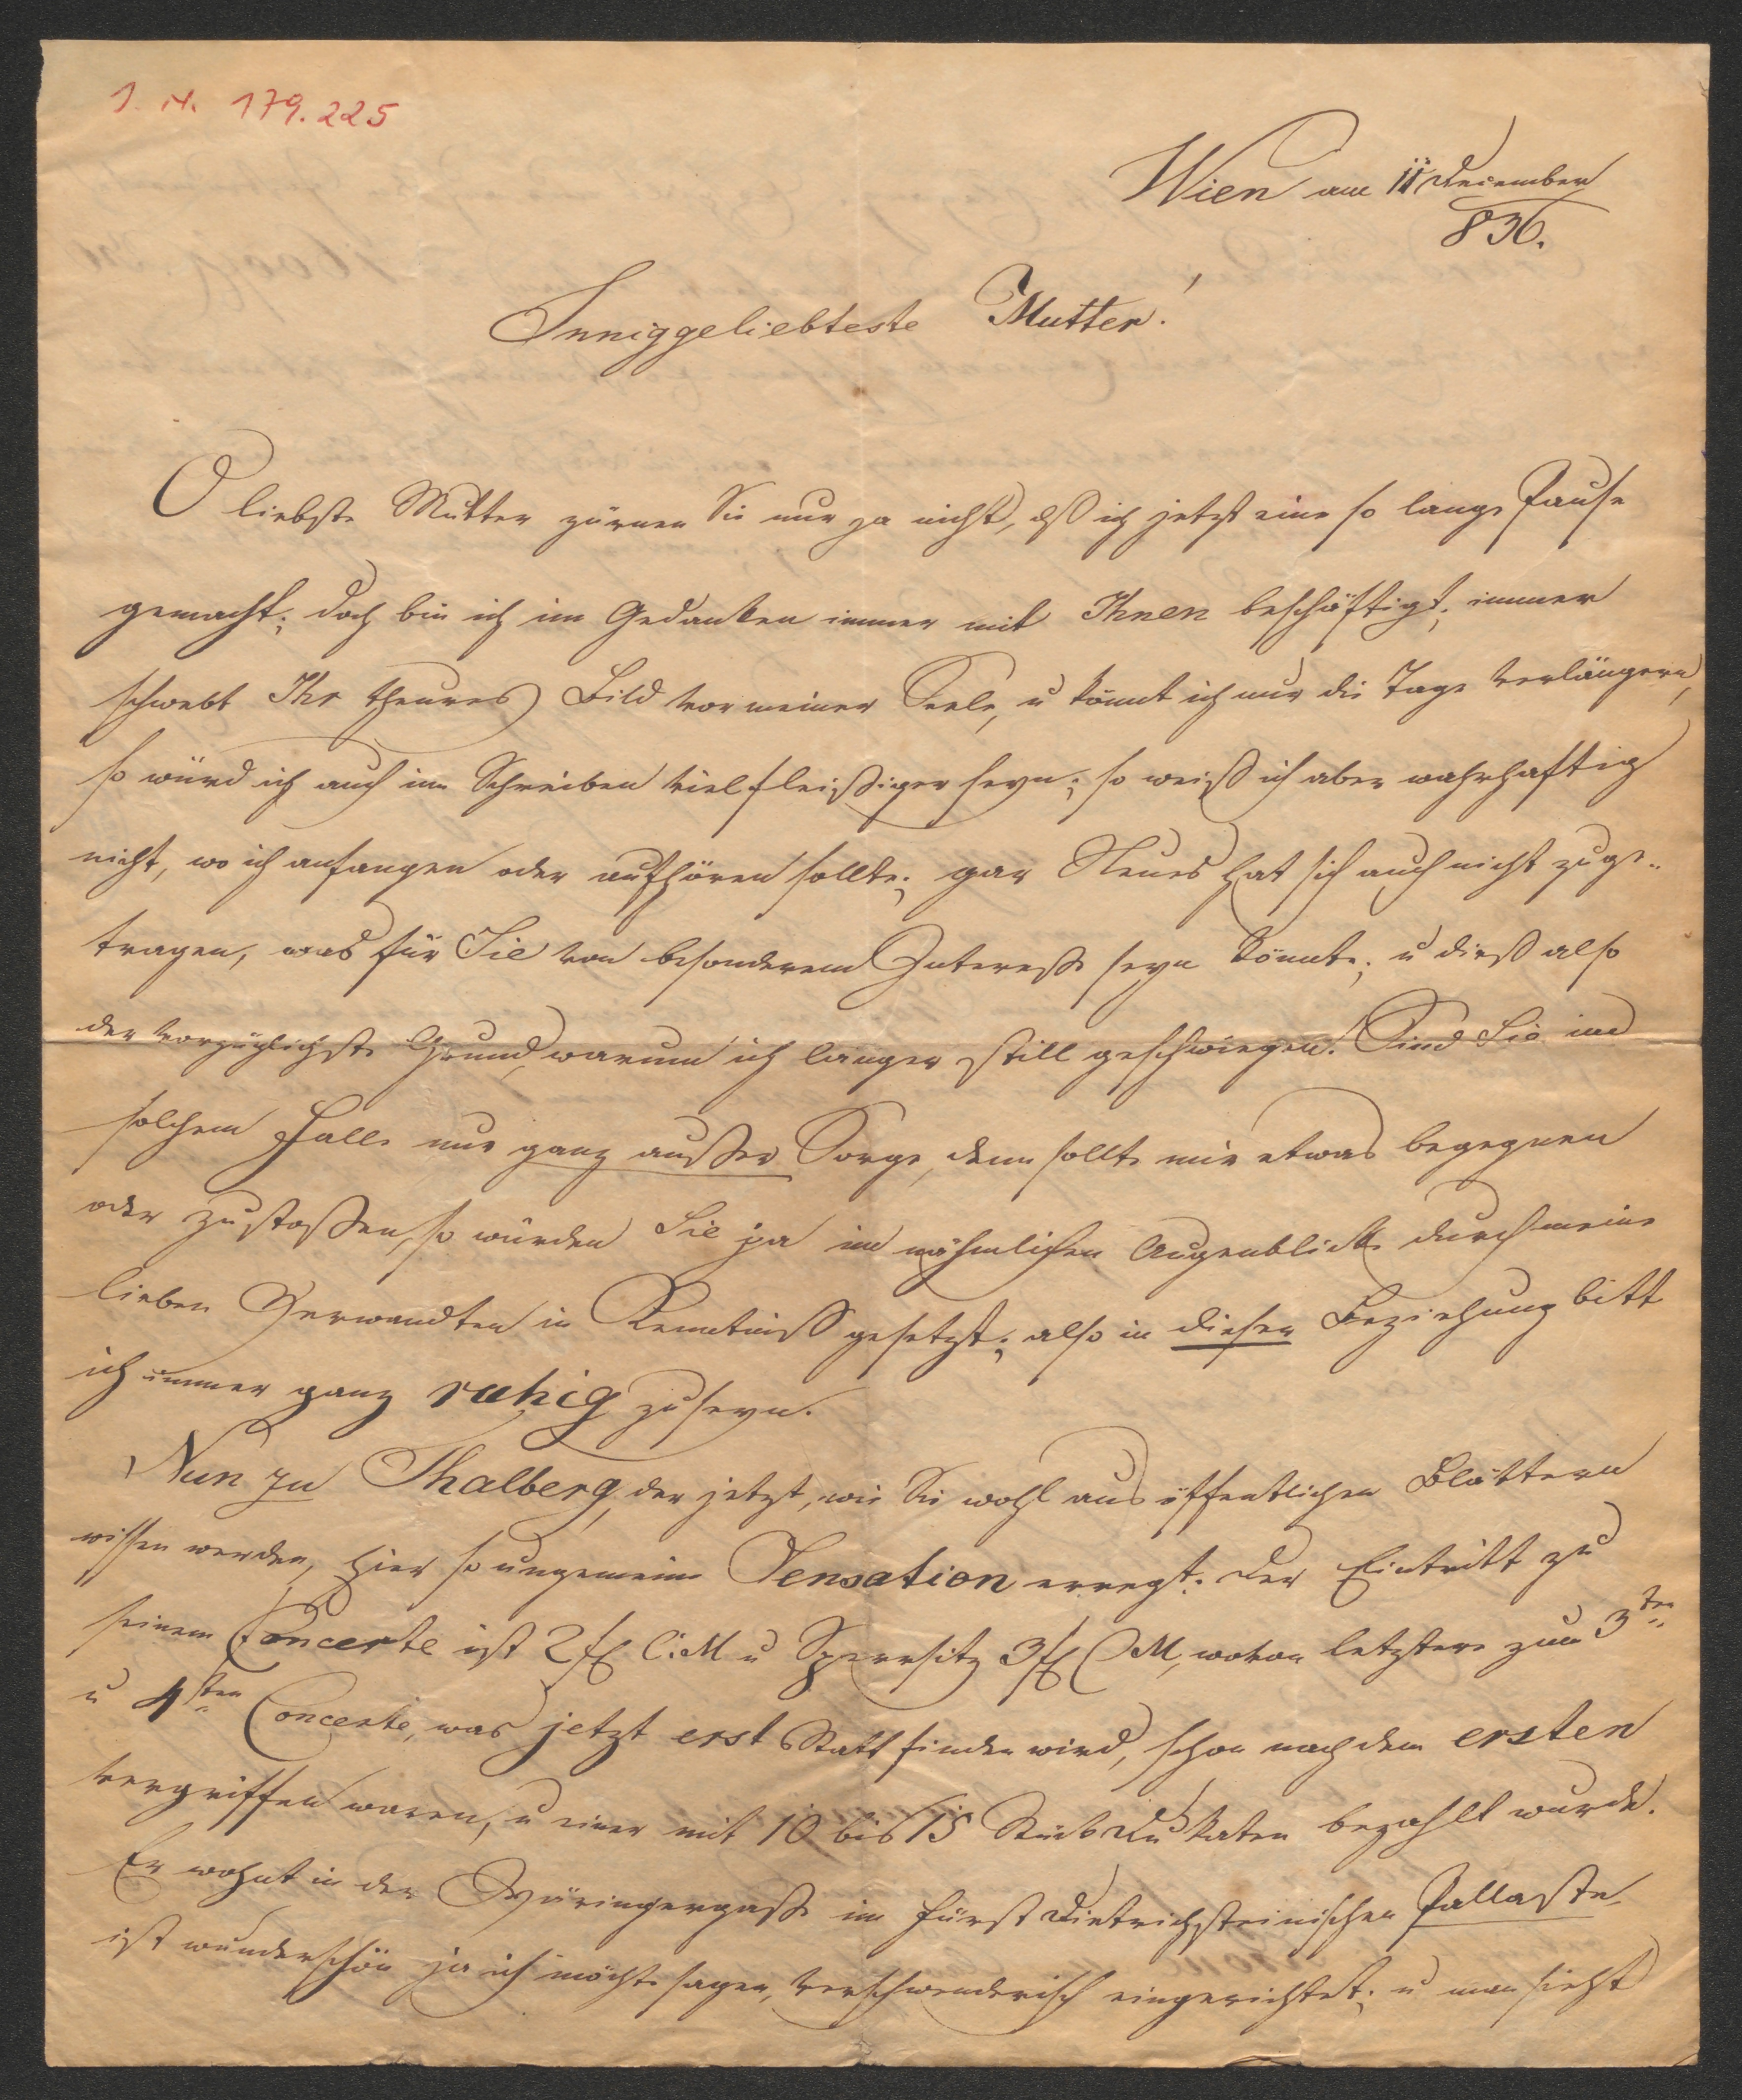 I. N. 179.225
Wien am 11 December
836.
Inniggeliebteste Mutter!
O liebste Mutter zürnen Sie nur ja nicht, dß ich jetzt eine so lange Pause
gemacht; doch bin ich im Gedanken immer mit Ihnen beschäftigt; immer
schwebt Ihr theures Bild vor meiner Seele, u könnt ich nur die Tage verlängern,
so würd ich auch im Schreiben viel fleißiger seyn; so weiß ich aber wahrhaftig
nicht, wo ich anfangen oder aufhören sollte; gar Neues hat sich auch nicht zuge-
tragen, was für Sie von besonderem Interesse seyn könnte; u dieß also
der vorzüglichste Grund, warum ich länger still geschwiegen. Sind Sie im
solchem Falle nur ganz außer Sorge, denn sollte mir etwas begegnen
oder zustoßen, so würden Sie ja im nähmlichen Augenblicke durch meine
lieben Verwandten in Kenntniß gesetzt; also in dieser Beziehung bitt
ich immer ganz ruhig zu seyn.
Nun zu Thalberg, der jetzt, wie Sie wohl aus öffentlichen Blättern
wissen werden, hier so ungemeine Sensation erregt. Der Eintritt zu
seinem Concerte ist 2 fl C.M u Sperrsitz 3 fl CM, wovon letztere zum 3ten
u 4ten Concerte, was jetzt erst Statt finden wird, schon nach dem ersten
vergriffen waren, u einer mit 10 bis 15 Stück Dukaten bezahlt wurde.
Er wohnt in der Währingergasse im Fürst Dietrichsteinischen Pallaste,
ist wunderschön ja ich möchte sagen, verschwenderisch eingerichtet; u man sieht